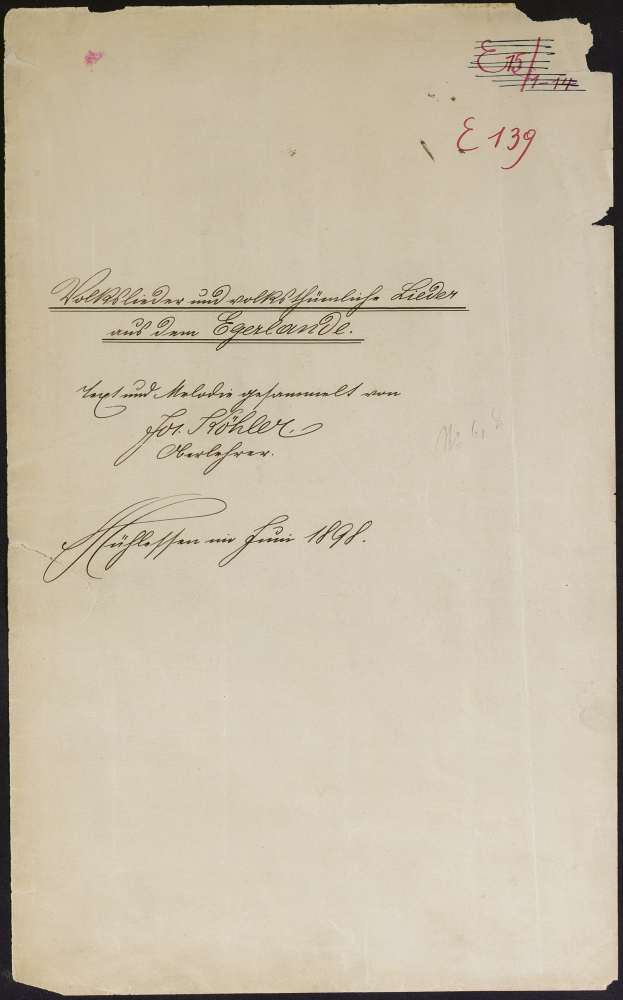 E 15/1-14
E 139
Volkslieder und volksthümliche Lieder
aus dem Egerlande.
Text und Melodie gesammelt von
Jos. Köhler,
Oberlehrer.
Mühlessen im Juni 1898.